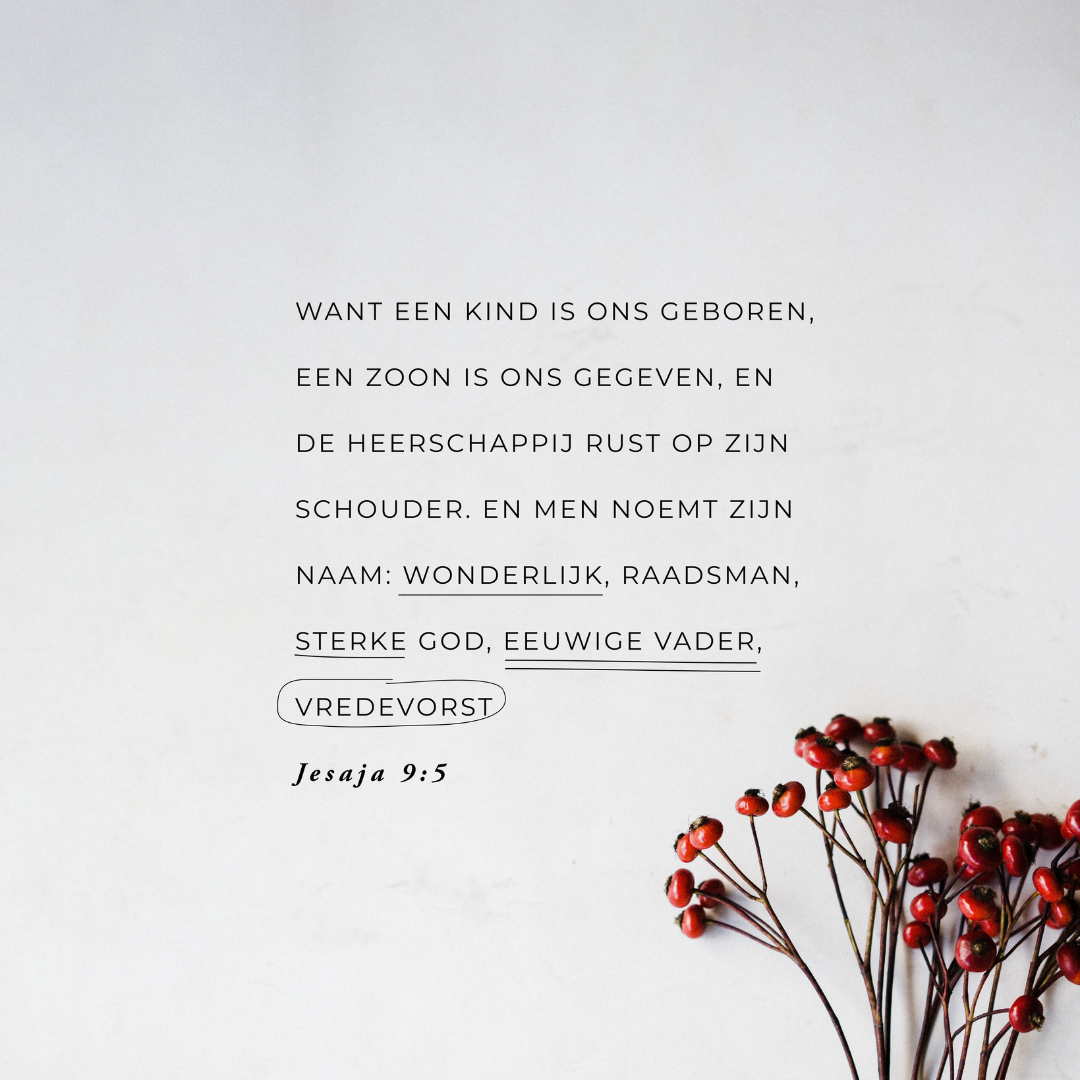 WANT EEN KIND IS ONS GEBOREN,
EEN ZOON IS ONS GEGEVEN, EN
DE HEERSCHAPPIJ RUST OP ZIJN
SCHOUDER. EN MEN NOEMT ZIJN
NAAM: WONDERLIJK, RAADSMAN,
STERKE GOD, EEUWIGE VADER,
VREDEVORST
Jesaja 9:5